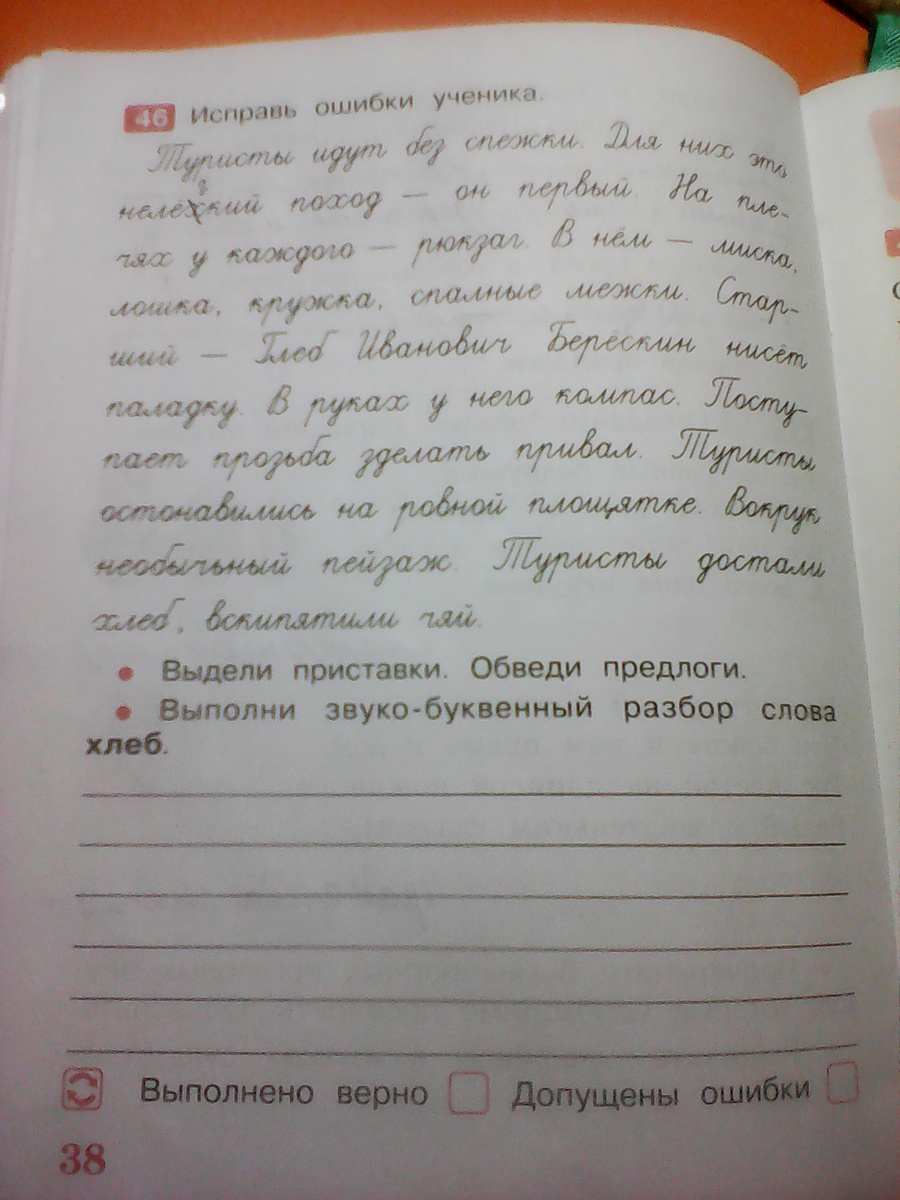 46 Исправь ошибки ученика.
Туристы идут без спежки. Для них это
нелёхкий поход — он первый. На пле-
г
чях у каждого — рюкзаг. В нём — миска,
лошка, кружка, спалные межки. Стар-
ший — Глеб Иванович Берёскин нисёт
паладку. В руках у него компас. Посту-
пает прозьба зделать привал. Туристы
остонавились на ровной площятке. Вокрук
необычьный пейзаж. Туристы достали
хлеб, вскипятили чяй.
• Выдели приставки. Обведи предлоги.
• Выполни звуко-буквенный разбор слова
хлеб.
Выполнено верно Допущены ошибки
38